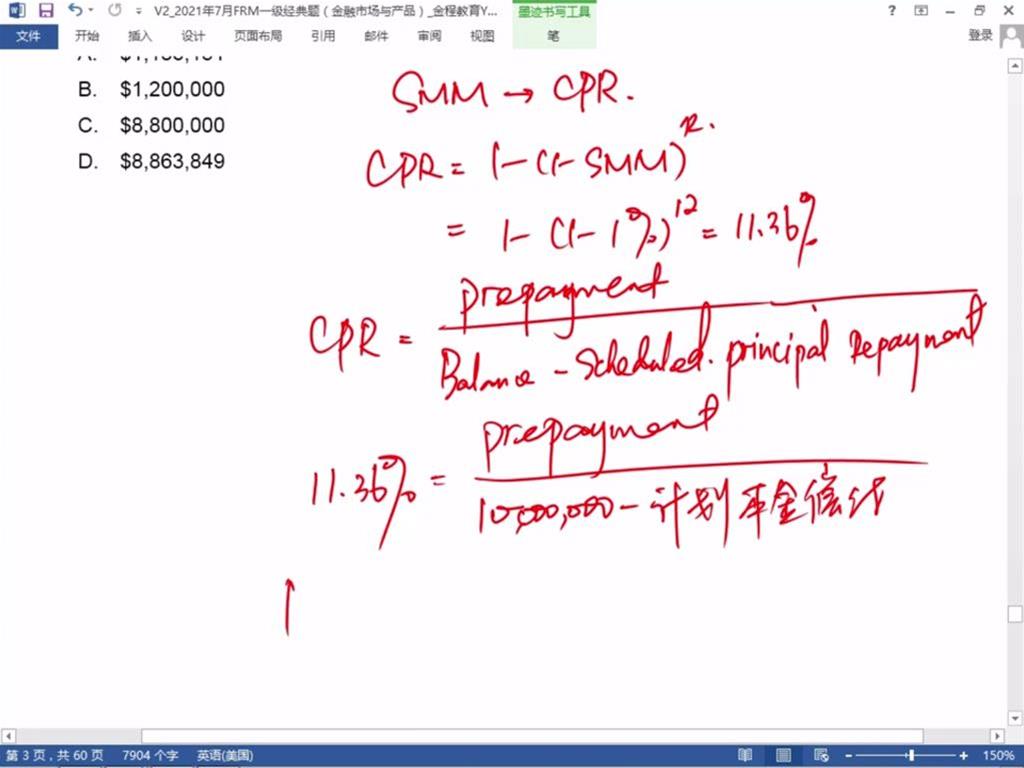 V2_2021年7月FRM一级经典题（金融市场与产品）_金程教育Y...
墨迹书写工具
文件 开始 插入 设计 页面布局 引用 邮件 审阅 视图 笔 登录
A.
B. $1,200,000
C. $8,800,000
D. $8,863,849
SMM → CPR.
CPR = 1-(1-SMM)^12.
= 1-(1-1%)^12 = 11.36%
CPR = prepayment
Balance - Scheduled. principal Repayment
11.36% = prepayment
10,000,000 - 计划本金偿付
第 3 页，共 60 页 7904 个字 英语(美国) 150%